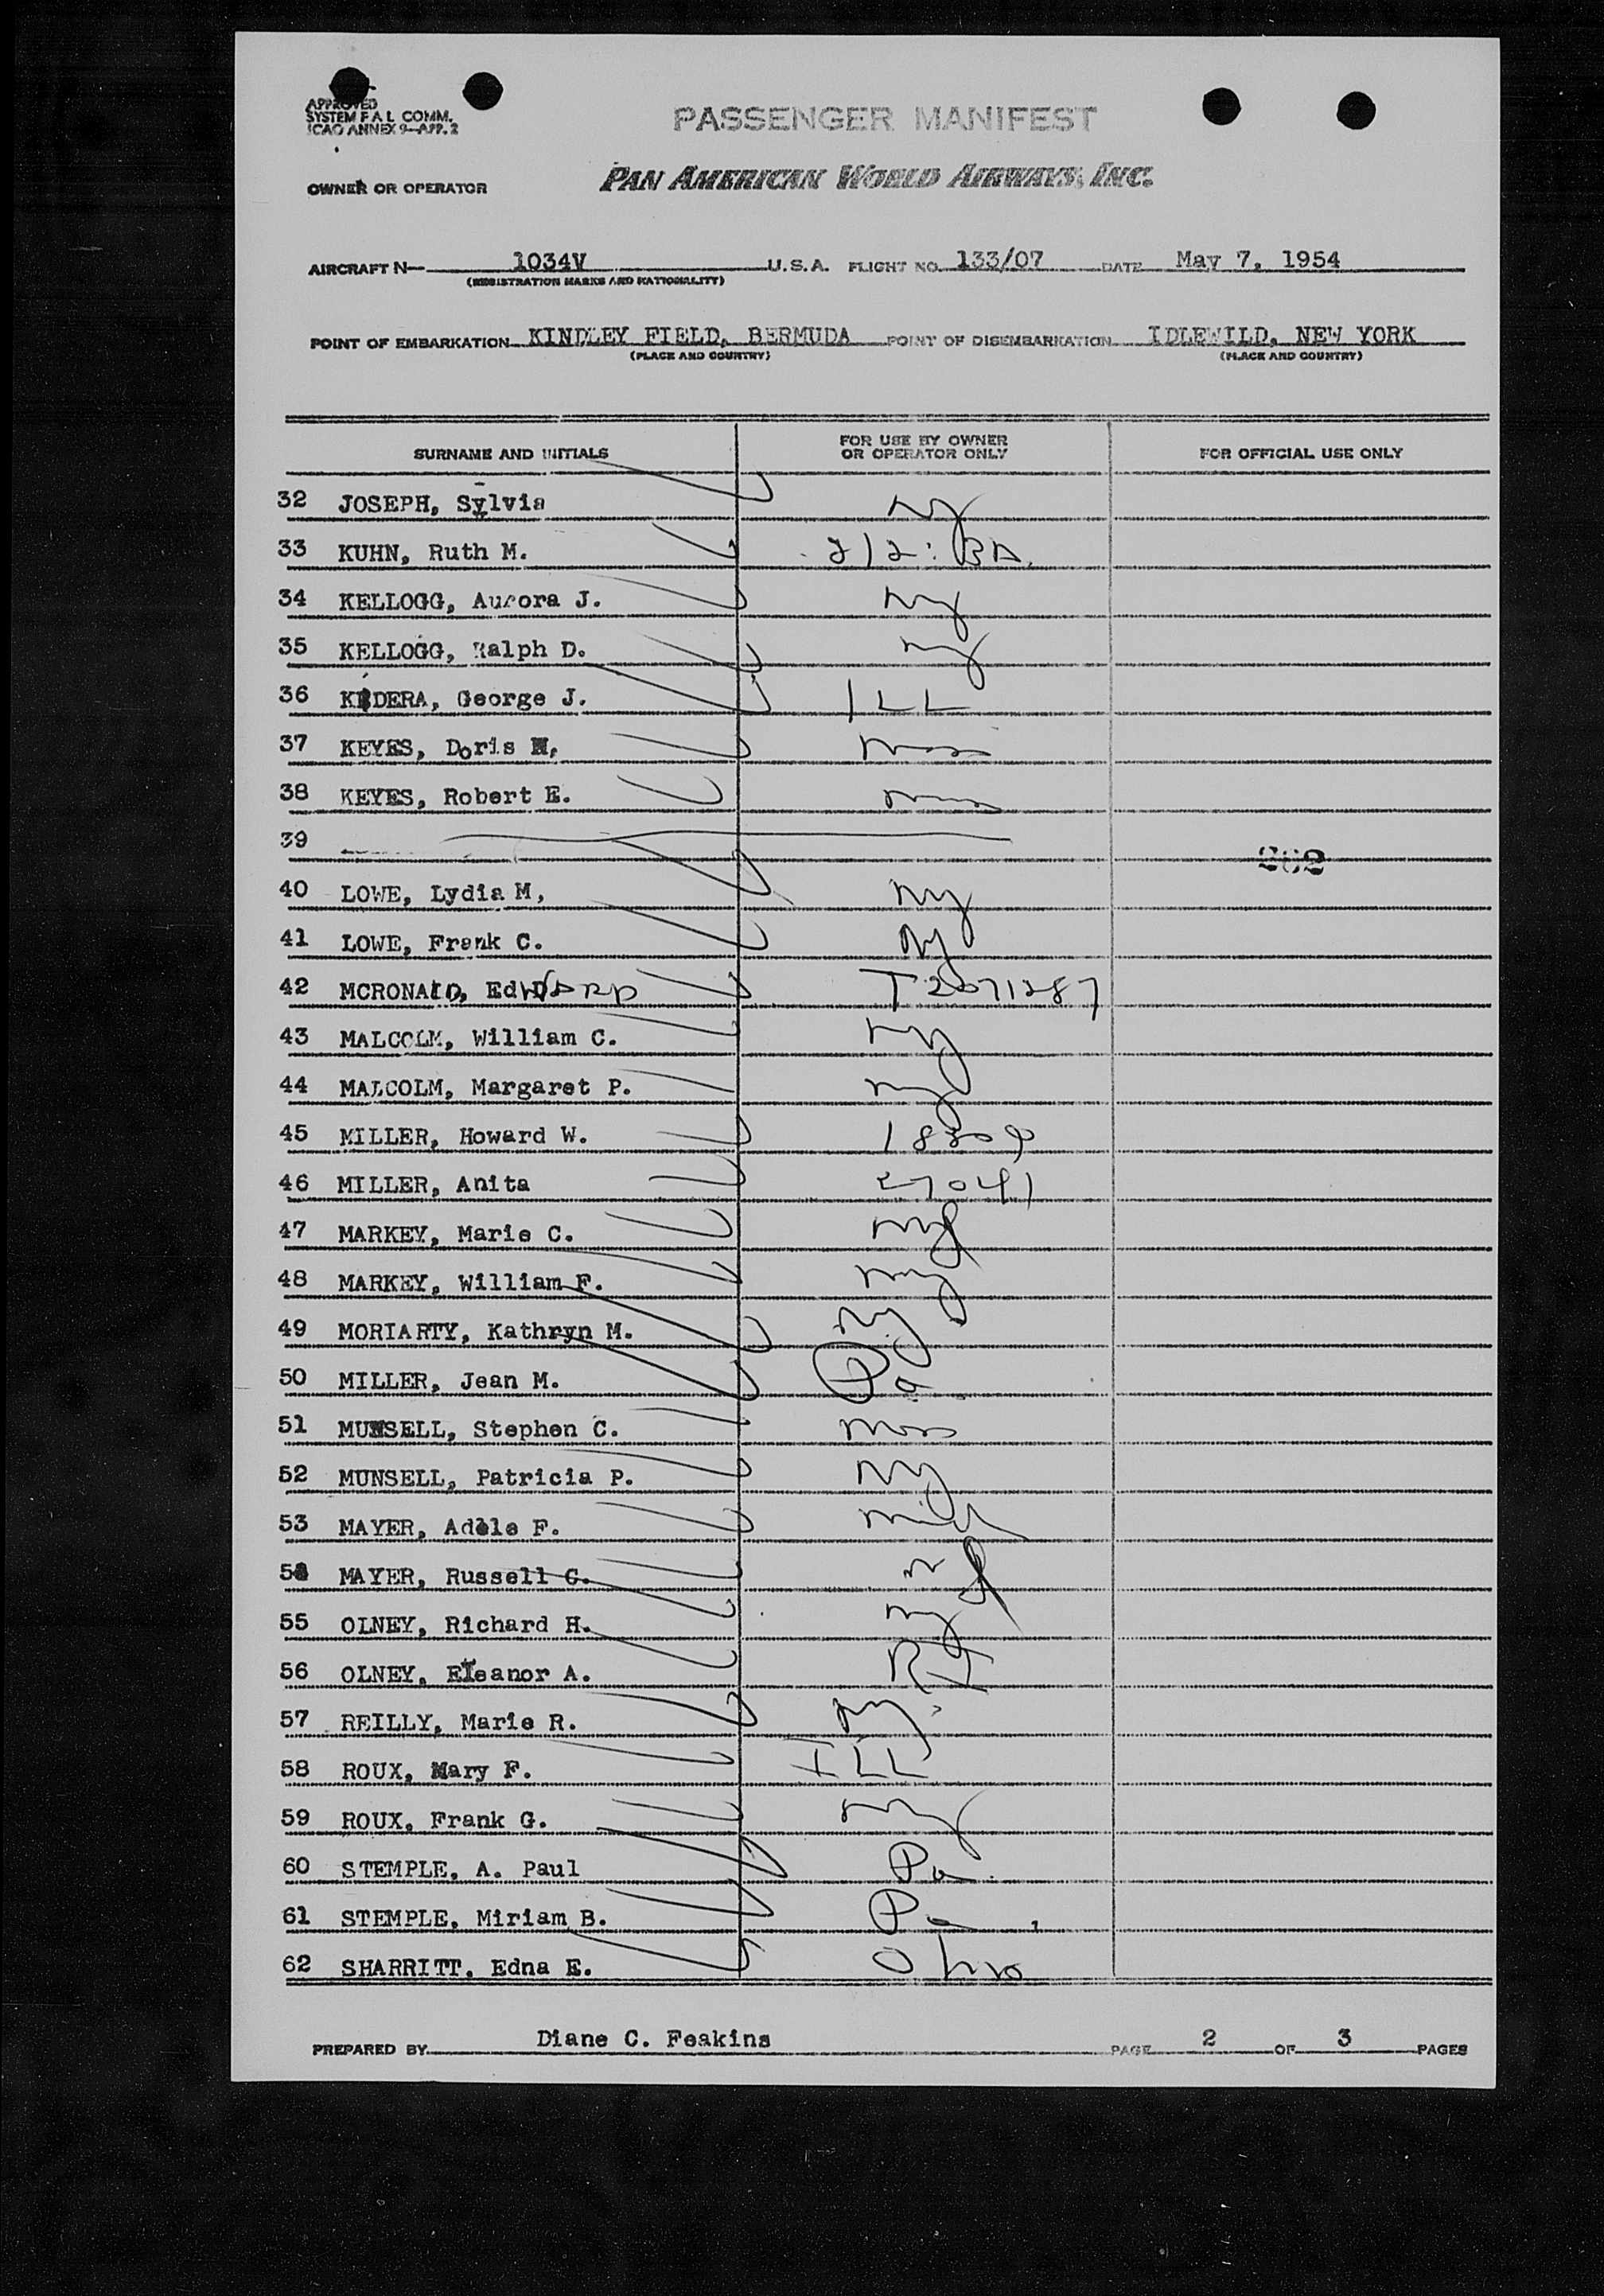 APPROVED
SYSTEM F A L COMM.
ICAO ANNEX 9-APP. 2
PASSENGER MANIFEST
OWNER OR OPERATOR PAN AMERICAN WORLD AIRWAYS, INC.
AIRCRAFT N- 1034V U.S.A. FLIGHT NO. 133/07 DATE May 7, 1954
(REGISTRATION MARKS AND NATIONALITY)
POINT OF EMBARKATION KINDLEY FIELD, BERMUDA POINT OF DISEMBARKATION IDLEWILD, NEW YORK
(PLACE AND COUNTRY) (PLACE AND COUNTRY)
SURNAME AND INITIALS FOR USE BY OWNER OR OPERATOR ONLY FOR OFFICIAL USE ONLY
32 JOSEPH, Sylvia Ny
33 KUHN, Ruth M. 212: BA.
34 KELLOGG, Aurora J. Ny
35 KELLOGG, Ralph D. Ny
36 George J. ILL
37 KEYES, Doris Mass
38 KEYES, Robert E. Mass
39
40 LOWE, Lydia M, Ny
41 LOWE, Frank C. Ny
42 EdWARD T2071287
43 MALCOLM, William C. Ny
44 MALCOLM, Margaret P. Ny
45 MILLER, Howard W.
46 MILLER, Anita 27041
47 MARKEY, Marie C. Ny
48 MARKEY, William F. Ny
49 MORIARTY, Kathryn M. Ny
50 MILLER, Jean M. Pa
51 MUNSELL, Stephen C. Mass
52 MUNSELL, Patricia P. Ny
53 MAYER, Adele F.
54 MAYER, Russell G.
55 OLNEY, Richard H. Ny
56 OLNEY, Eleanor A.
57 REILLY, Marie R. Ny
58 ROUX, Mary F. ILL
59 ROUX, Frank G. Ny
60 STEMPLE, A. Paul Pa.
61 STEMPLE, Miriam B. Pa
62 SHARRITT, Edna E. Ohio
PREPARED BY Diane C. Feakins PAGE 2 OF 3 PAGES